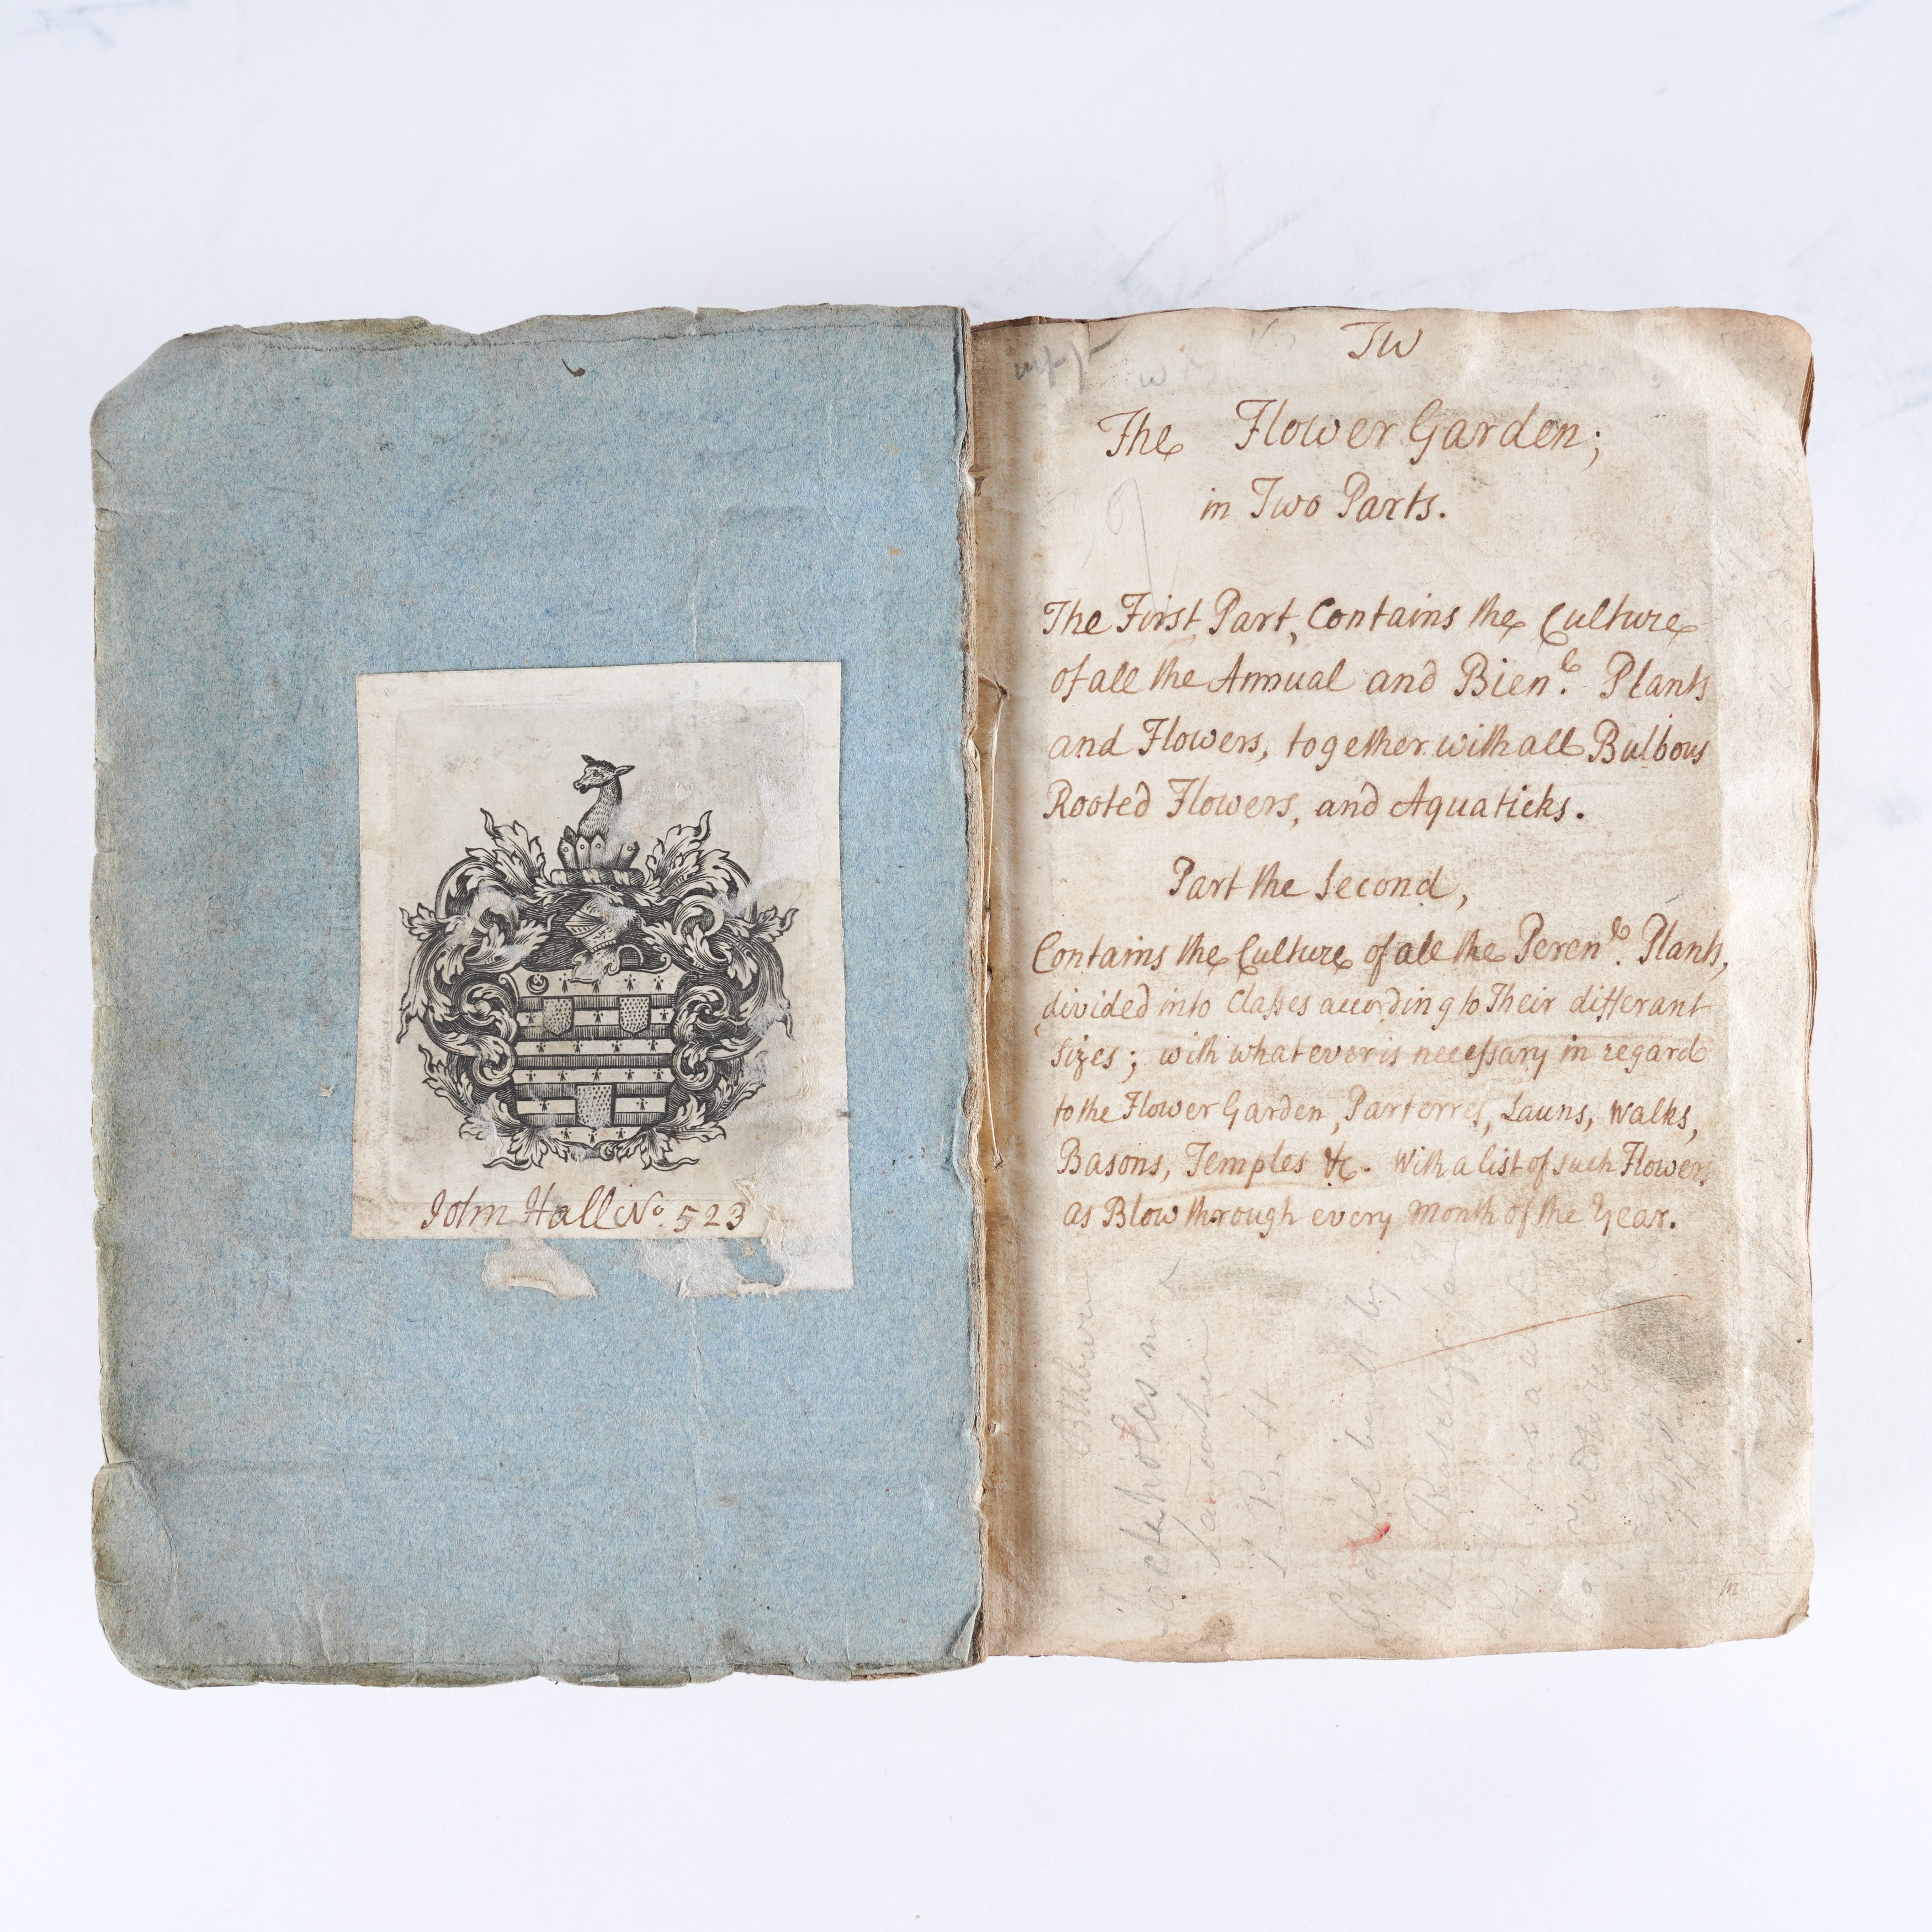 John Hall No. 523
TW
The Flower Garden;
in Two Parts.
The First Part, Contains the Culture
of all the Annual and Bien.le Plants
and Flowers, together with all Bulbous
Rooted Flowers, and Aquaticks.
Part the Second,
Contains the Culture of all the Peren.le Plants,
divided into Classes according to Their differant
Sizes; with whatever is necessary in regard
to the Flower Garden, Parterres, Launs, Walks,
Basons, Temples &c. With a list of such Flowers
as Blow through every Month of the Year.